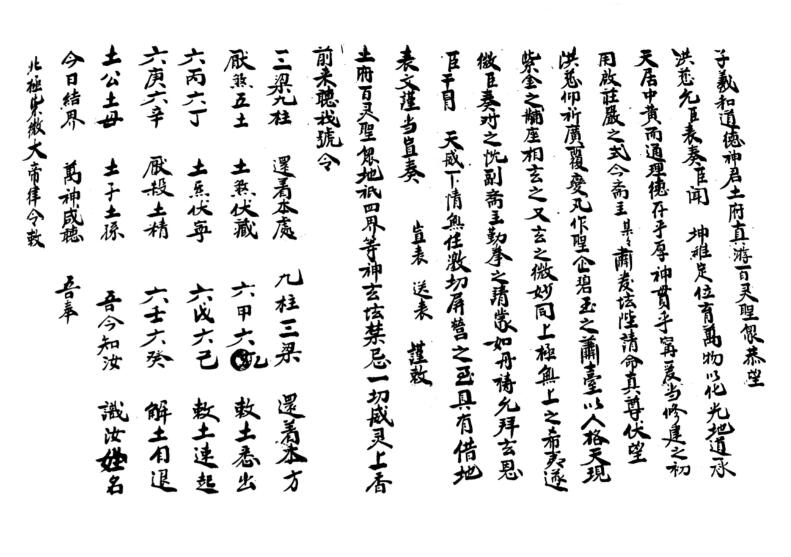 子羲和道德神君土府真游百灵聖众恭望
洪慈允臣表奏臣聞 坤維定位育萬物以化光地道承
天居中黄而通理德存乎厚神貫乎寘爰当修建之初
用啟莊嚴之式今斋主 具 肅嚴坛陛請命真尊伏望
洪慈仰祈廣覆爰凡作聖企碧玉之蕭臺以人格天現
紫金之黼座相玄之又玄之微妙同上極無上之希夷遂
微臣奏对之忱副斋主勤拳之請蒙如丹禱允拜玄恩
臣干冒 天威下情無任激切屏營之至具有借地
表文謹当宣奏 宣表 送表 謹敕
土府百灵聖众地祇四界等神玄坛禁忌一切咸灵上香
前来聽我號令
三梁九柱 還着本處 九柱三梁 還着本方
厭煞五土 土煞伏藏 六甲六乙 敕土悉出
六丙六丁 土炁伏寧 六戊六己 敕土速起
六庚六辛 厭殺土精 六壬六癸 解土自退
土公土母 土子土孫 吾今知汝 識汝姓名
今日結界 萬神咸聽 吾奉
北極紫微大帝律令敕